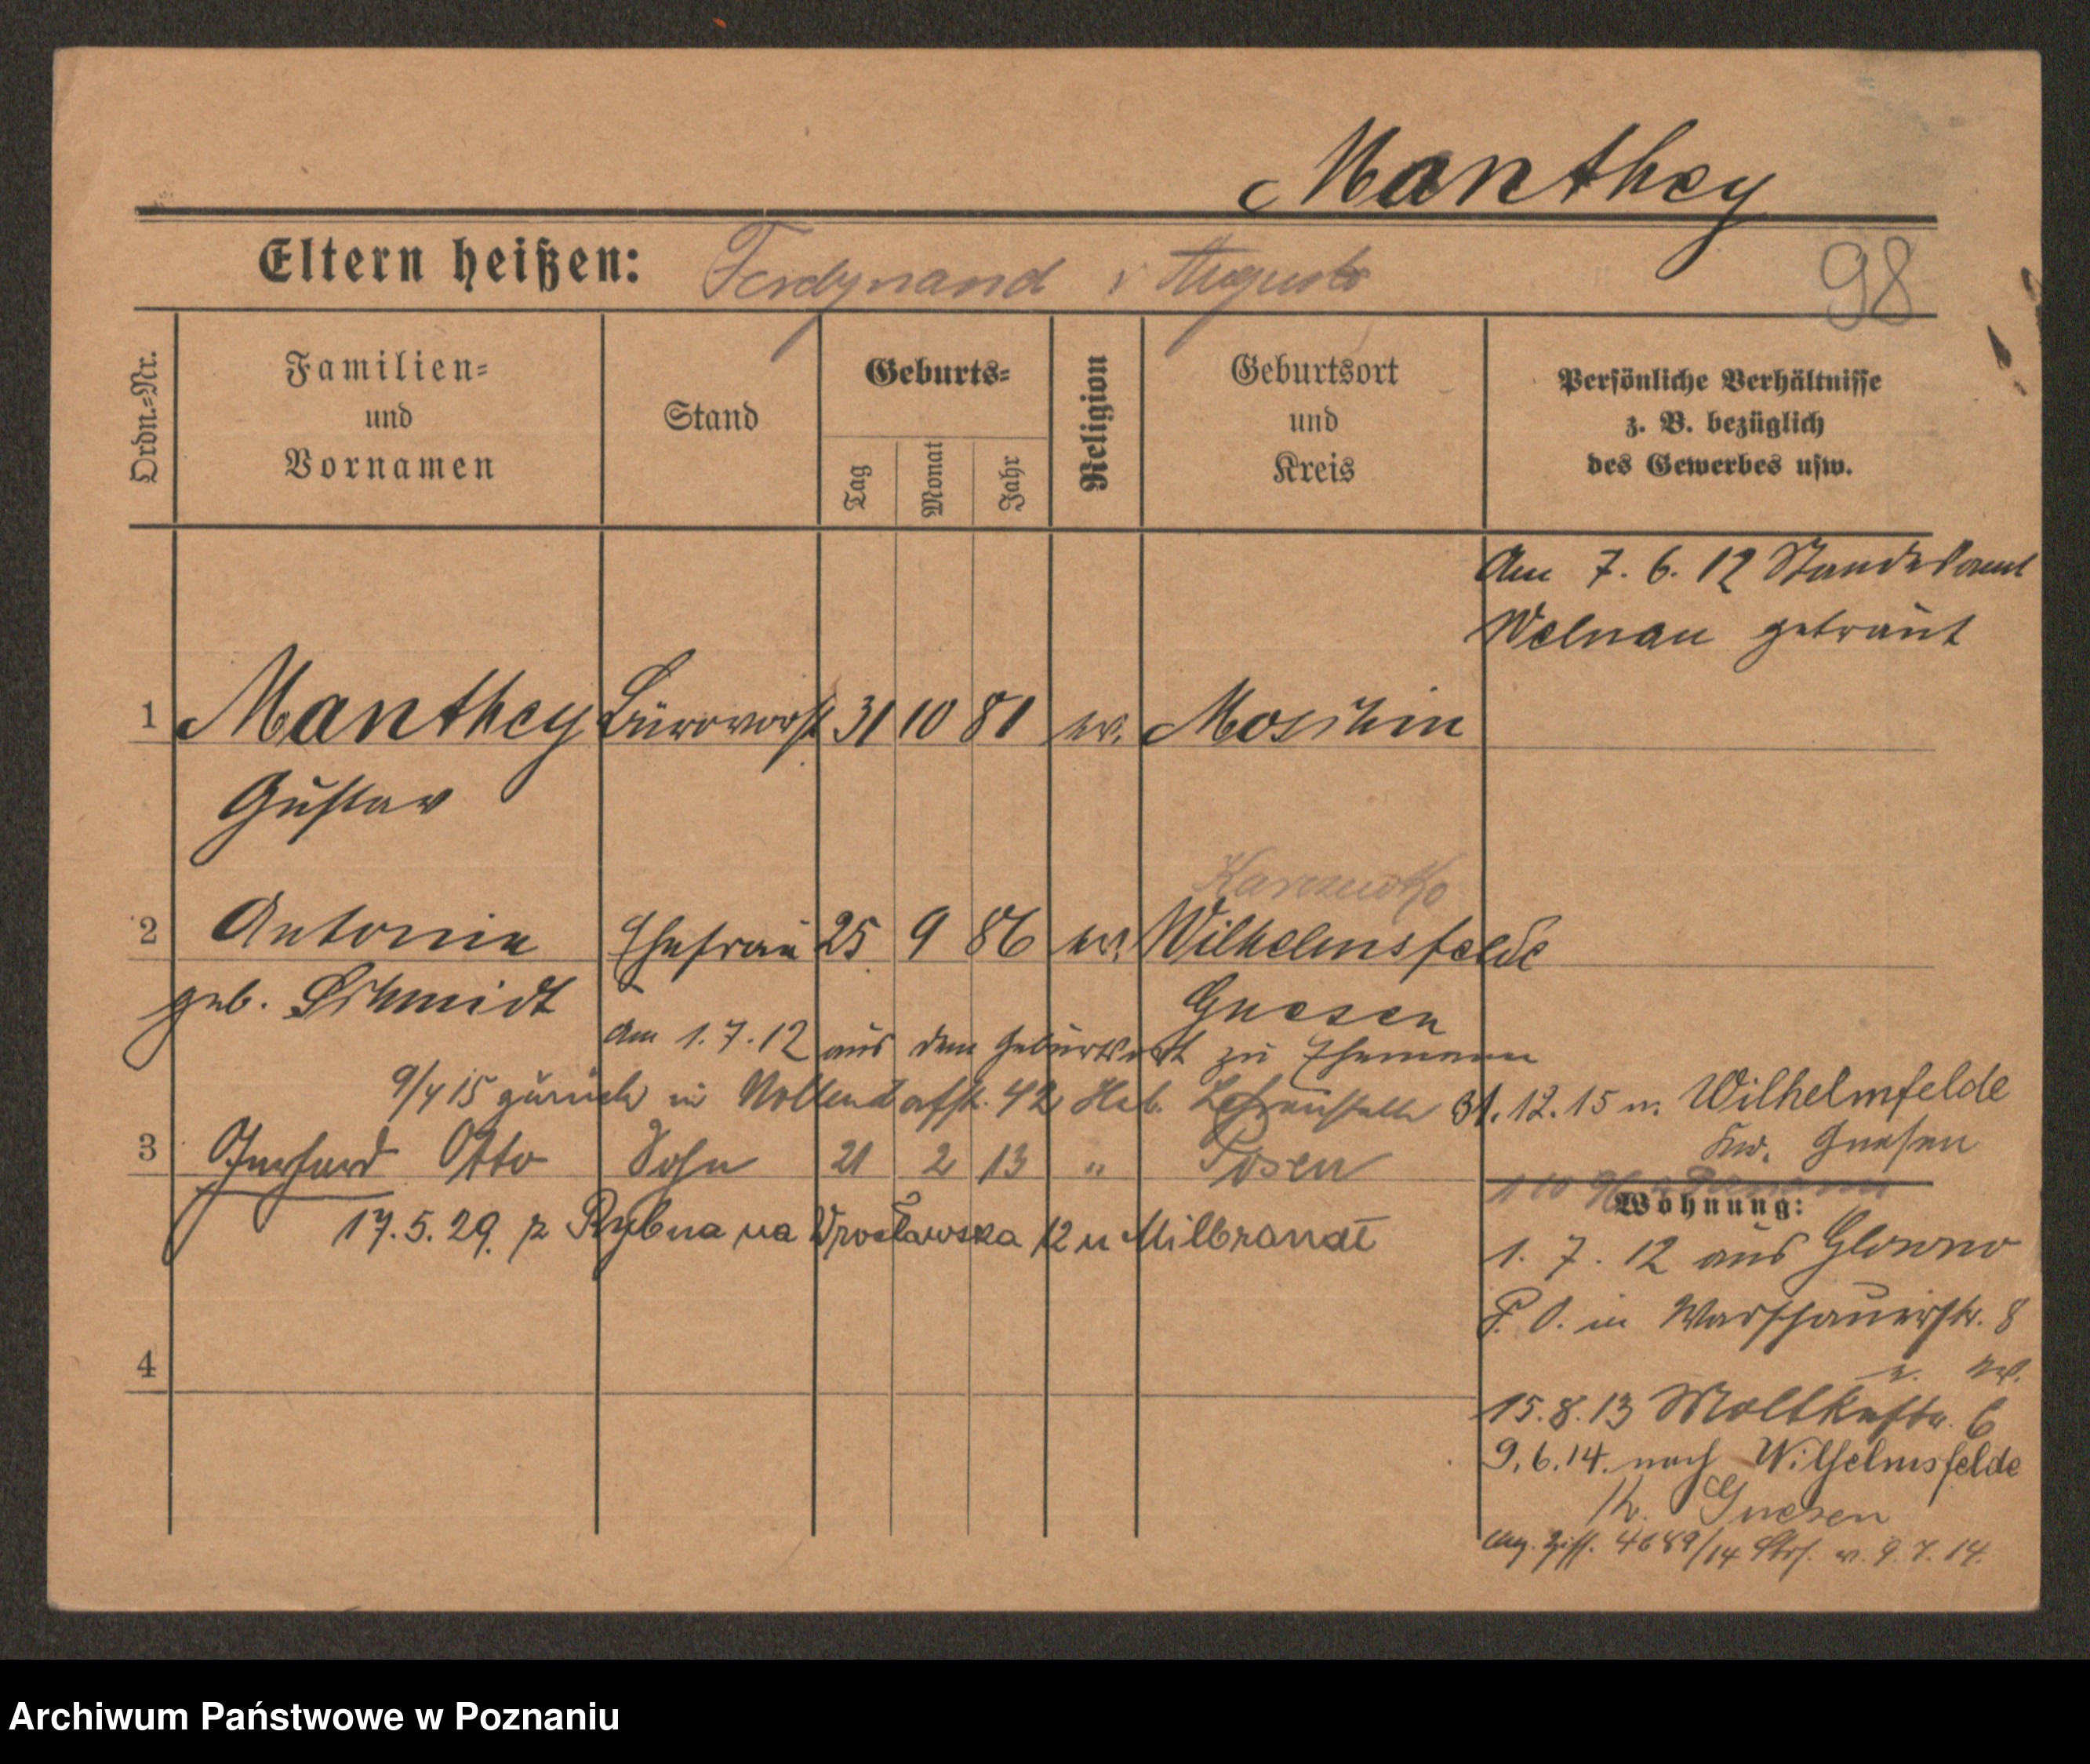 Manthey
Eltern heißen: Ferdynand i Augusta
98
Ordn.=Nr.
Familien=
und
Vornamen
Stand
Geburts=
Tag
Monat
Jahr
Religion
Geburtsort
und
Kreis
Persönliche Verhältnisse
z. B. bezüglich
des Gewerbes usw.
Am 7. 6. 12 Standesamt
Welnau getraut
1 Manthey Bürovorst 31 10 81 ev. Moschin
Gustav
Karczewko
2 Antonie Ehefrau 25 9 86 ev. Wilhelmsfelde
geb. Schmidt Gnesen
Am 1. 7. 12 aus dem Geburtsort zu Ehemann
9/4 15 zurück in Nollendorfstr. 42 Heb. Lehranstalt 31. 12. 15 n. Wilhelmfelde
Kr. Gnesen
3 Gerhard Otto Sohn 21 2 13 " Posen
Wohnung:
17. 5. 29. z Rybna na Wrocławska 12 u Milbrandt
1. 7. 12 aus Glowno
P. O. in Warschauerstr. 8
15. 8. 13 Moltkestr. 6
9. 6. 14. nach Wilhelmsfelde
Kr. Gnesen
4
4689/14 v. 9. 7. 14.